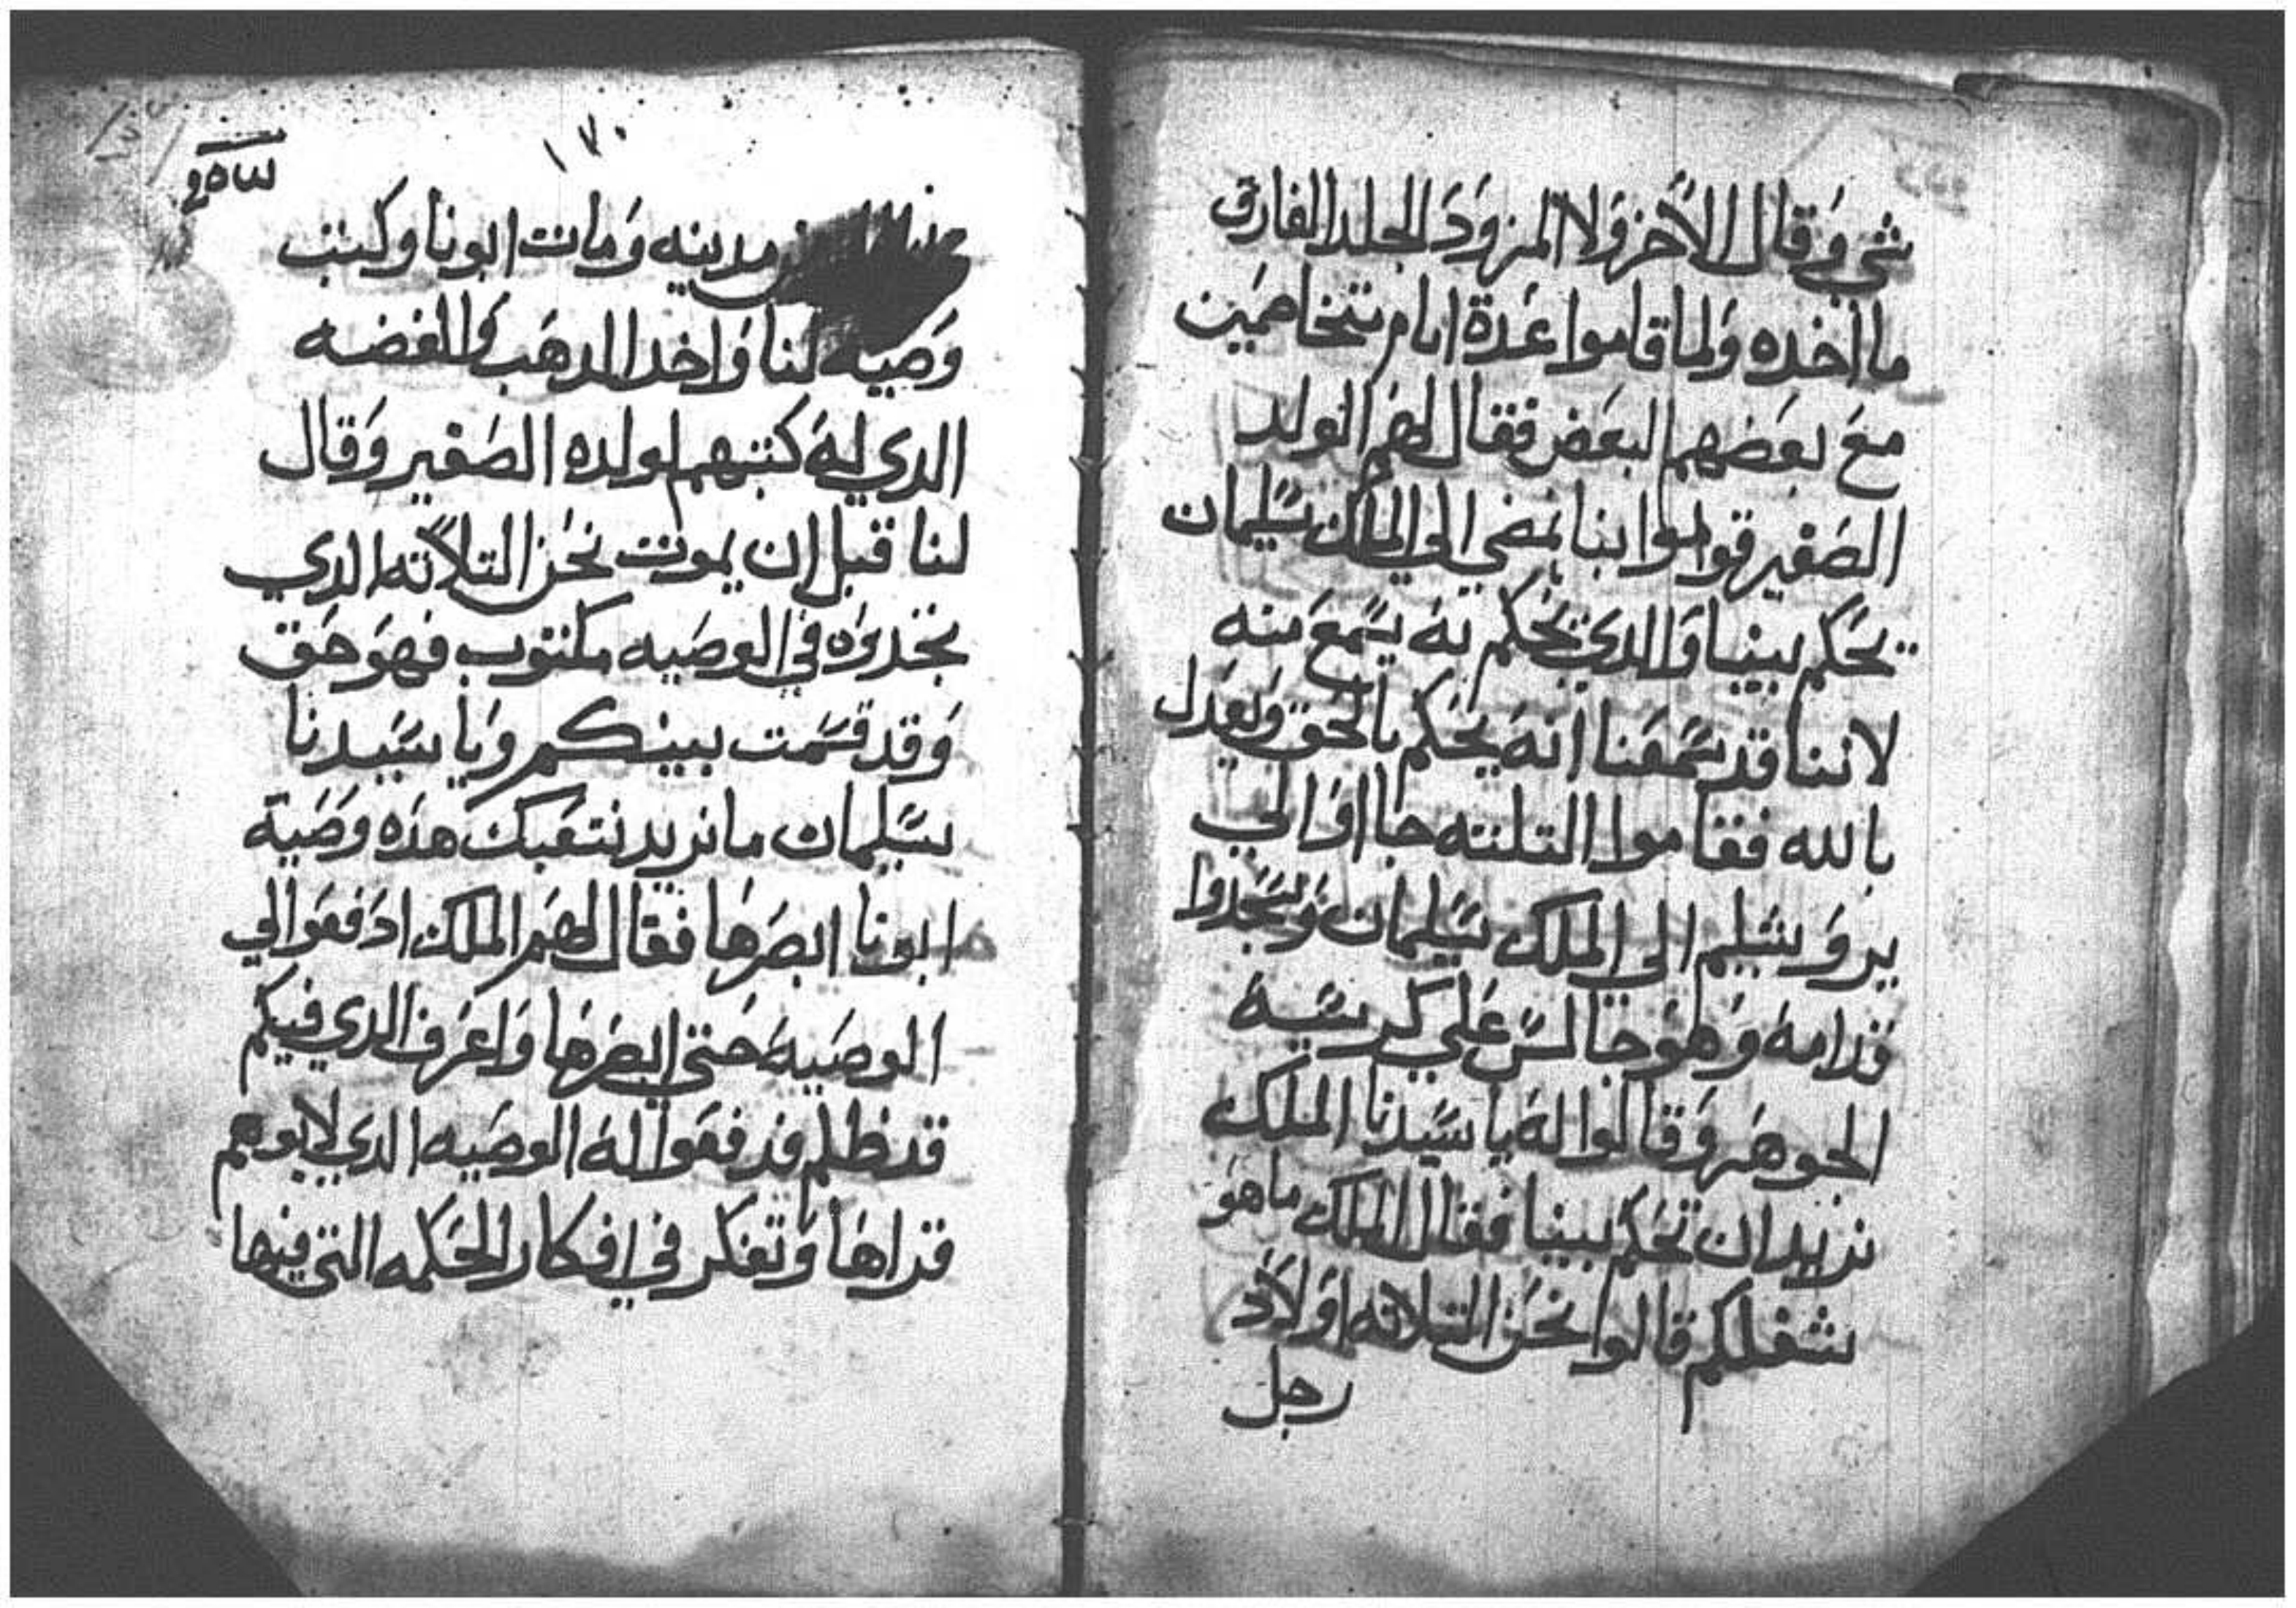 شي وَقال الاَخر وَلا المزوَد الجلد الفارق
ما اخده وَلما قاموا عَدة ايام يتخاصمَين
مَع بعَضهم البعَض فقال لهَم الولد
الصَغير قوموا بنا نمضي الي الملك سَليمان
يحَكم بيننا وَالدي يحَكم بهَ يسَمعَ منه
لاننا قد سَمعَنا انهَ يحَكم بالحَق وَيعَدل
بالله فقاموا التلته جا اوَ الي
يروَ شليم الى الملك سَليمان وَسَجدوا
قدامهَ وَهوَ جالسَ عَلي كرسَيهَ
الجوهَر وَقالوا لهَ يا سَيدنا الملك
نريد ان تحَكم بيننا فقال الملك ما هوَ
شغلكم قالوا نحَن التلاته اوَلاَد
رجل
١٧٠
مدينه وَمات ابونا وكتب
وَصَيه لنا وَاخد الدهَب وَالفضه
الدي لهَ كتبهم لولده الصَغير وَقال
لنا قبل ان يموت نحَن التلاَته الدي
تجدوَه في الوصَيه مكتوب فهوَ حَق
وَقد قسَمت بينكم وَيا سَيدنا
سَليمان ما نريد نتعَبك هدَه وصَيةَ
ابونا ابصَرهَا فقال لهَم الملك ادَفعَوا لي
الوصَيهَ حَتي ابصَرهَا وَاعَرف الدي فيكم
قد ظلم فدفعَوا لهَ الوصَيه الدي لابوهم
قراهَا وَتفكر في افكار الحَكمه التي فيها